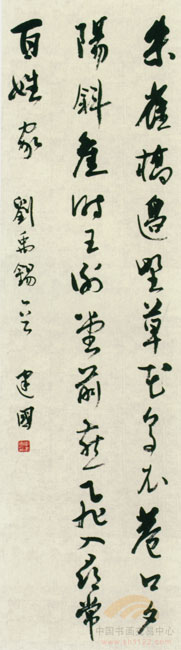 朱雀橋邊野草花烏衣巷口夕
陽斜舊时王谢堂前燕飛入尋常
百姓家 劉禹錫 建國
中国书画交易中心